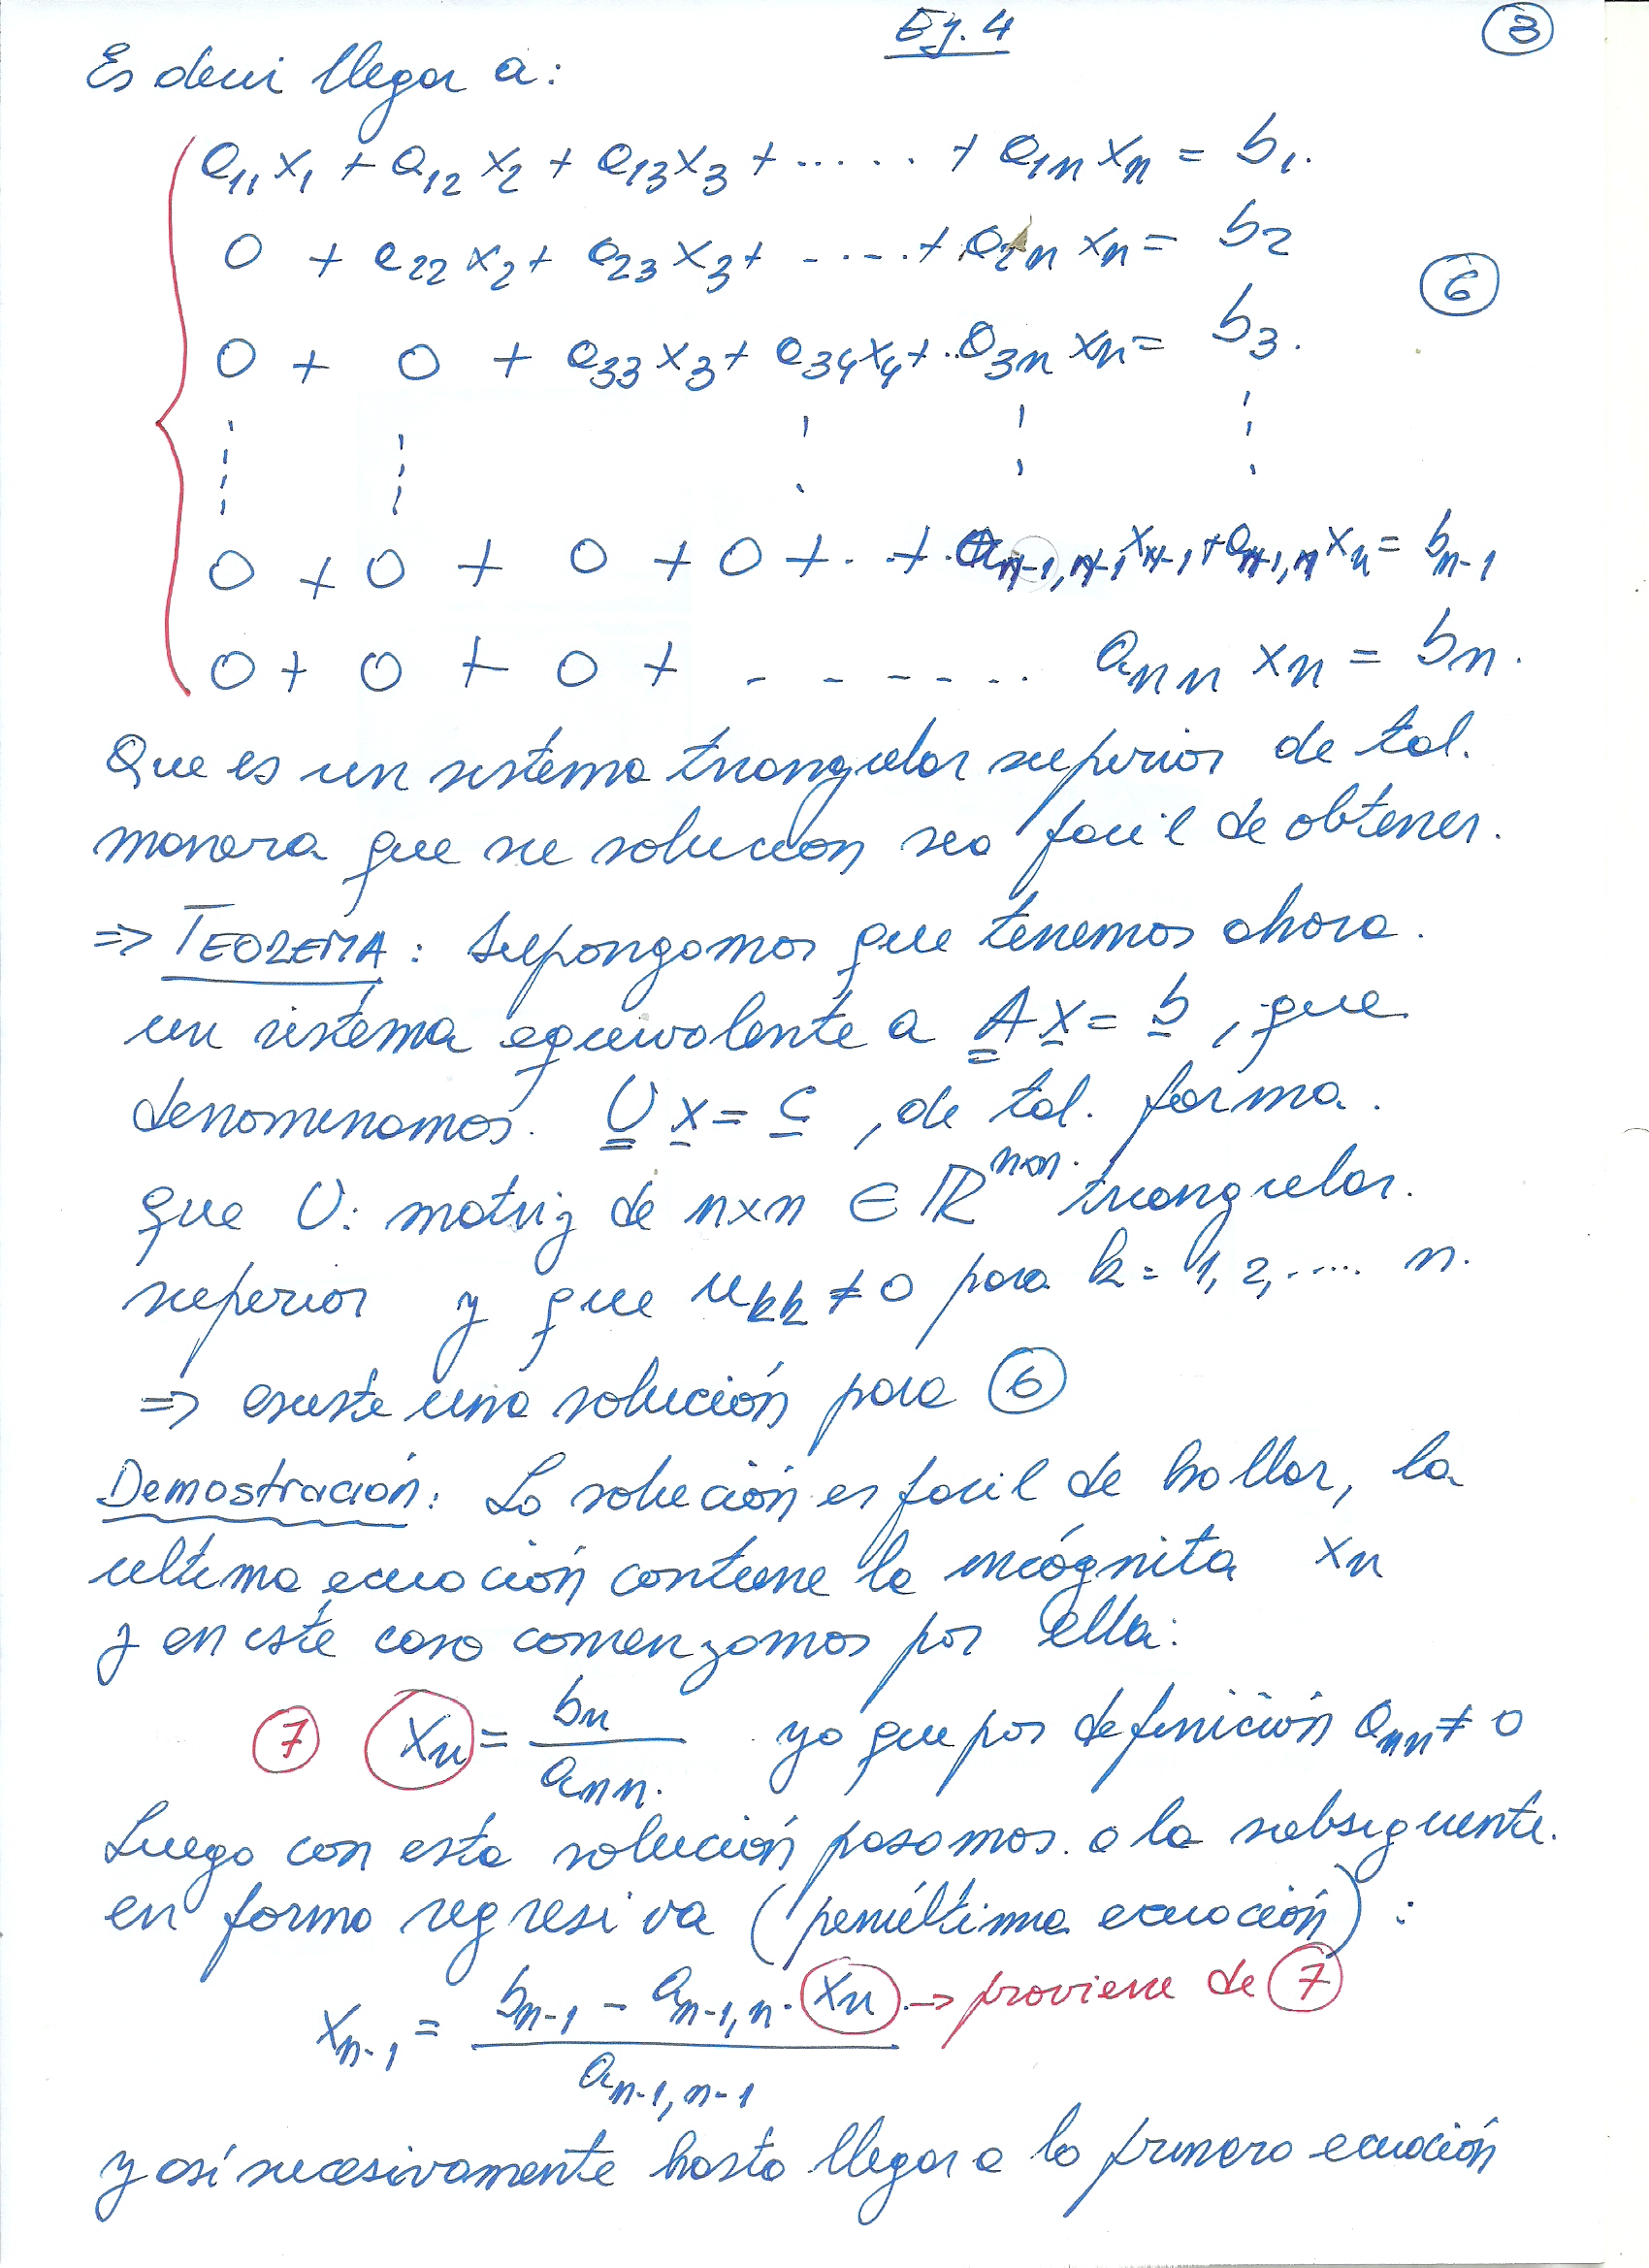 Ej. 4
3
Es decir llegar a:
a11 x1 + a12 x2 + a13 x3 + ..... + a1n xn = b1.
0 + a22 x2 + a23 x3 + ..... + a2n xn = b2
6
0 + 0 + a33 x3 + a34 x4 + .. a3n xn = b3.
0 + 0 + 0 + 0 + .. + an-1,n-1 xn-1 + an-1,n xn = bn-1
0 + 0 + 0 + - - - - - .. ann xn = bn.
Que es un sistema triangular superior de tal.
manera que su solucion sea facil de obtener.
=> TEOREMA: Supongamos que tenemos ahora.
un sistema equivalente a A x = b, que
denominamos. U x = c, de tal. forma.
que U: matriz de nxn ∈ ℝ^nxn. triangular.
superior y que ukk ≠ 0 para k = 1, 2, ..... n.
=> existe una solución para 6
Demostración: La solución es facil de hallar, la
ultima ecuación contiene la incógnita xn
y en este caso comenzamos por ella:
7 xn = bn / ann. ya que por definición ann ≠ 0
Luego con esta solución pasamos. a la subsiguiente.
en forma regresiva (penúltima ecuación):
xn-1 = bn-1 - an-1,n. xn / an-1,n-1 -> proviene de 7
y así sucesivamente hasta llegar a la primera ecuación